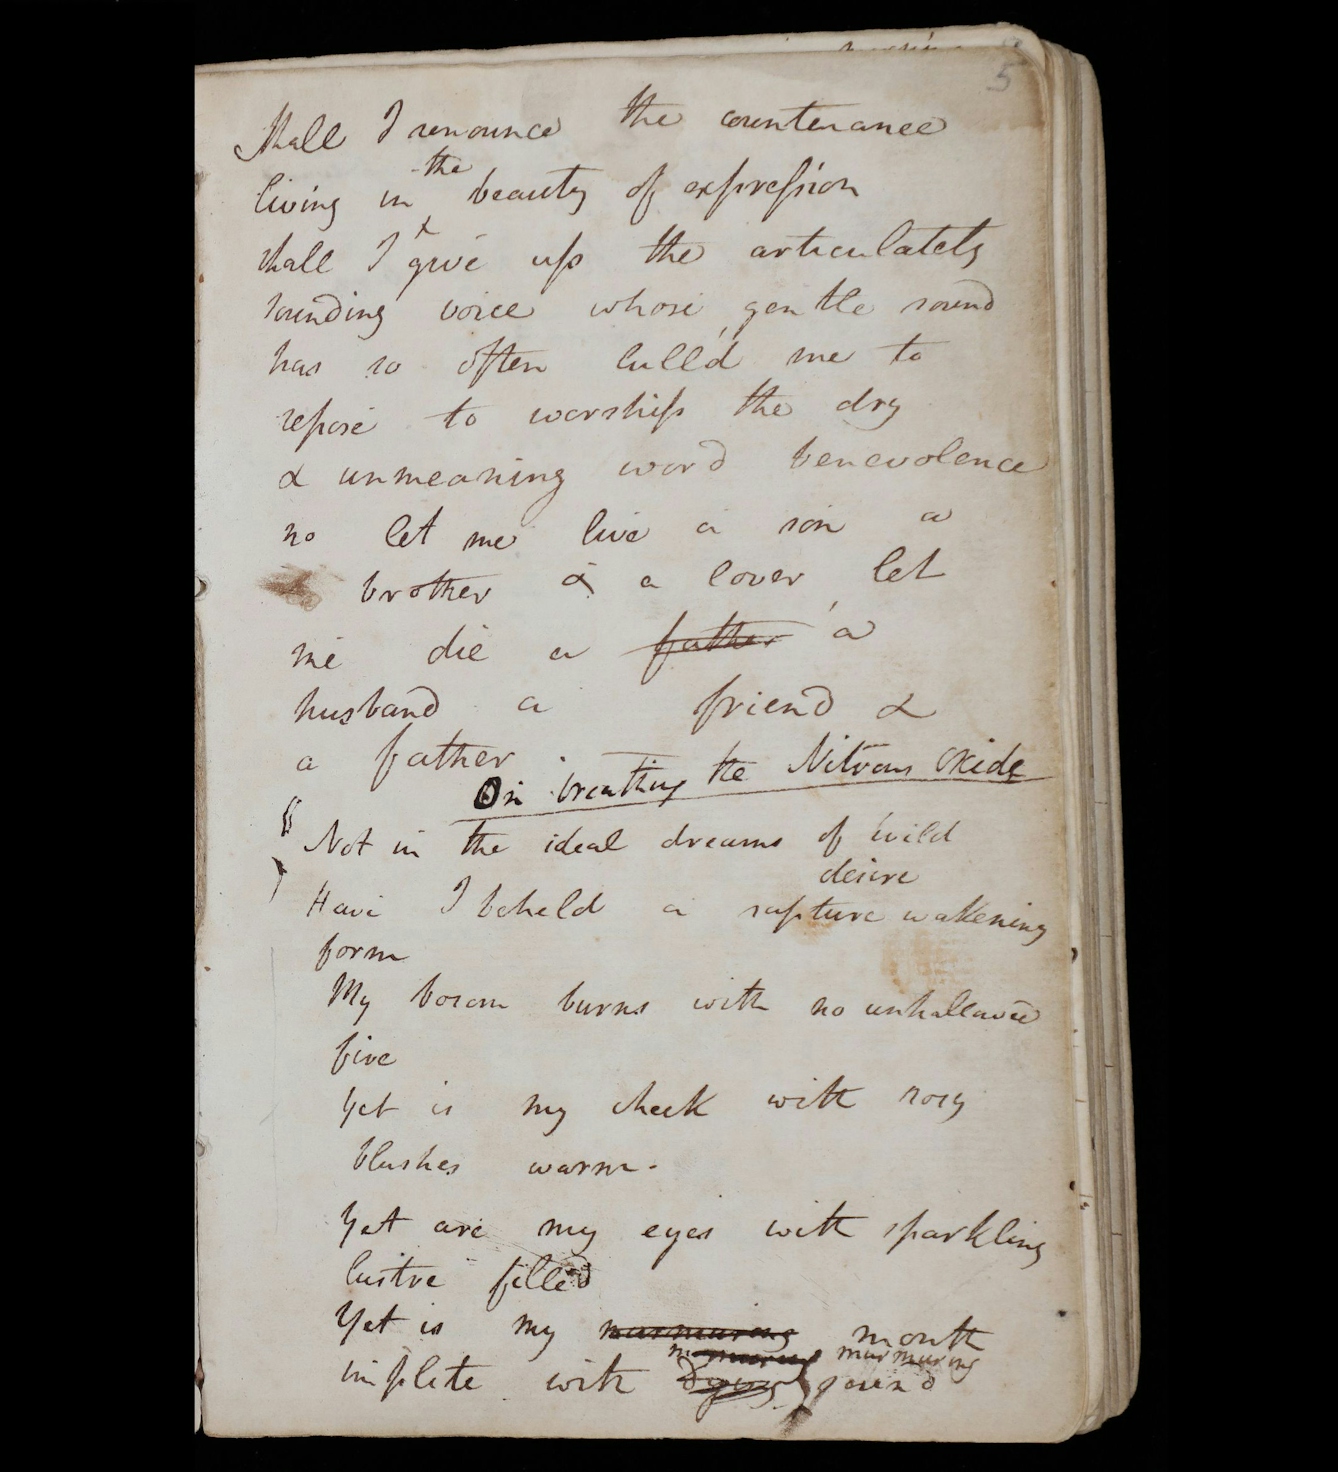 5
Shall I renounce the countenance
living in the beauty of expression
shall I give up the articulately
sounding voice whose gentle sound
has so often lull'd me to
repose to worship the dry
& unmeaning word benevolence
no let me live a son a
brother & a lover let
me die a father a
husband a friend &
a father .
On breathing the Nitrous Oxide
Not in the ideal dreams of wild
desire
Have I beheld a rapture wakening
form
My bosom burns with no unhallowed
fire
Yet is my cheek with rosy
blushes warm.
Yet are my eyes with sparkling
lustre filled
Yet is my murmuring mouth
murmuring
implete with dying sound